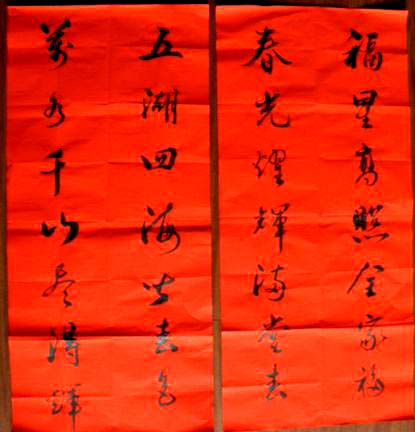 福星高照全家福
春光耀輝满堂春
五湖四海皆春色
萬水千山尽得輝